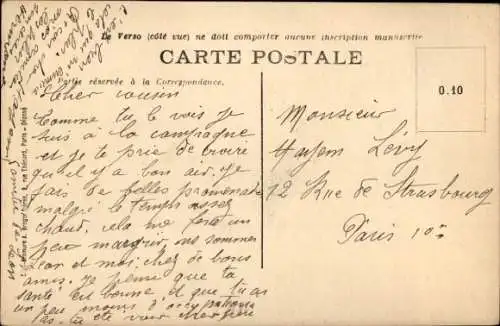 Le Verso (côté vue) ne doit comporter aucune inscription manuscrite
CARTE POSTALE
Partie réservée à la Correspondance.
0.10
Cher cousin
Comme tu le vois je
suis à la campagne
et je te prie de croire
qu'il y a bon air. Je
fais de belles promenades
malgré le temps assez
chaud, cela me fait un
peu maigrir, nous sommes
Léon et moi, chez de bons
amis. Je pense que ta
santé est bonne et que tu as
un peu moins d'occupations
as-tu été voir
Monsieur
Hayem Lévy
12 Rue de Strasbourg
Paris 10e